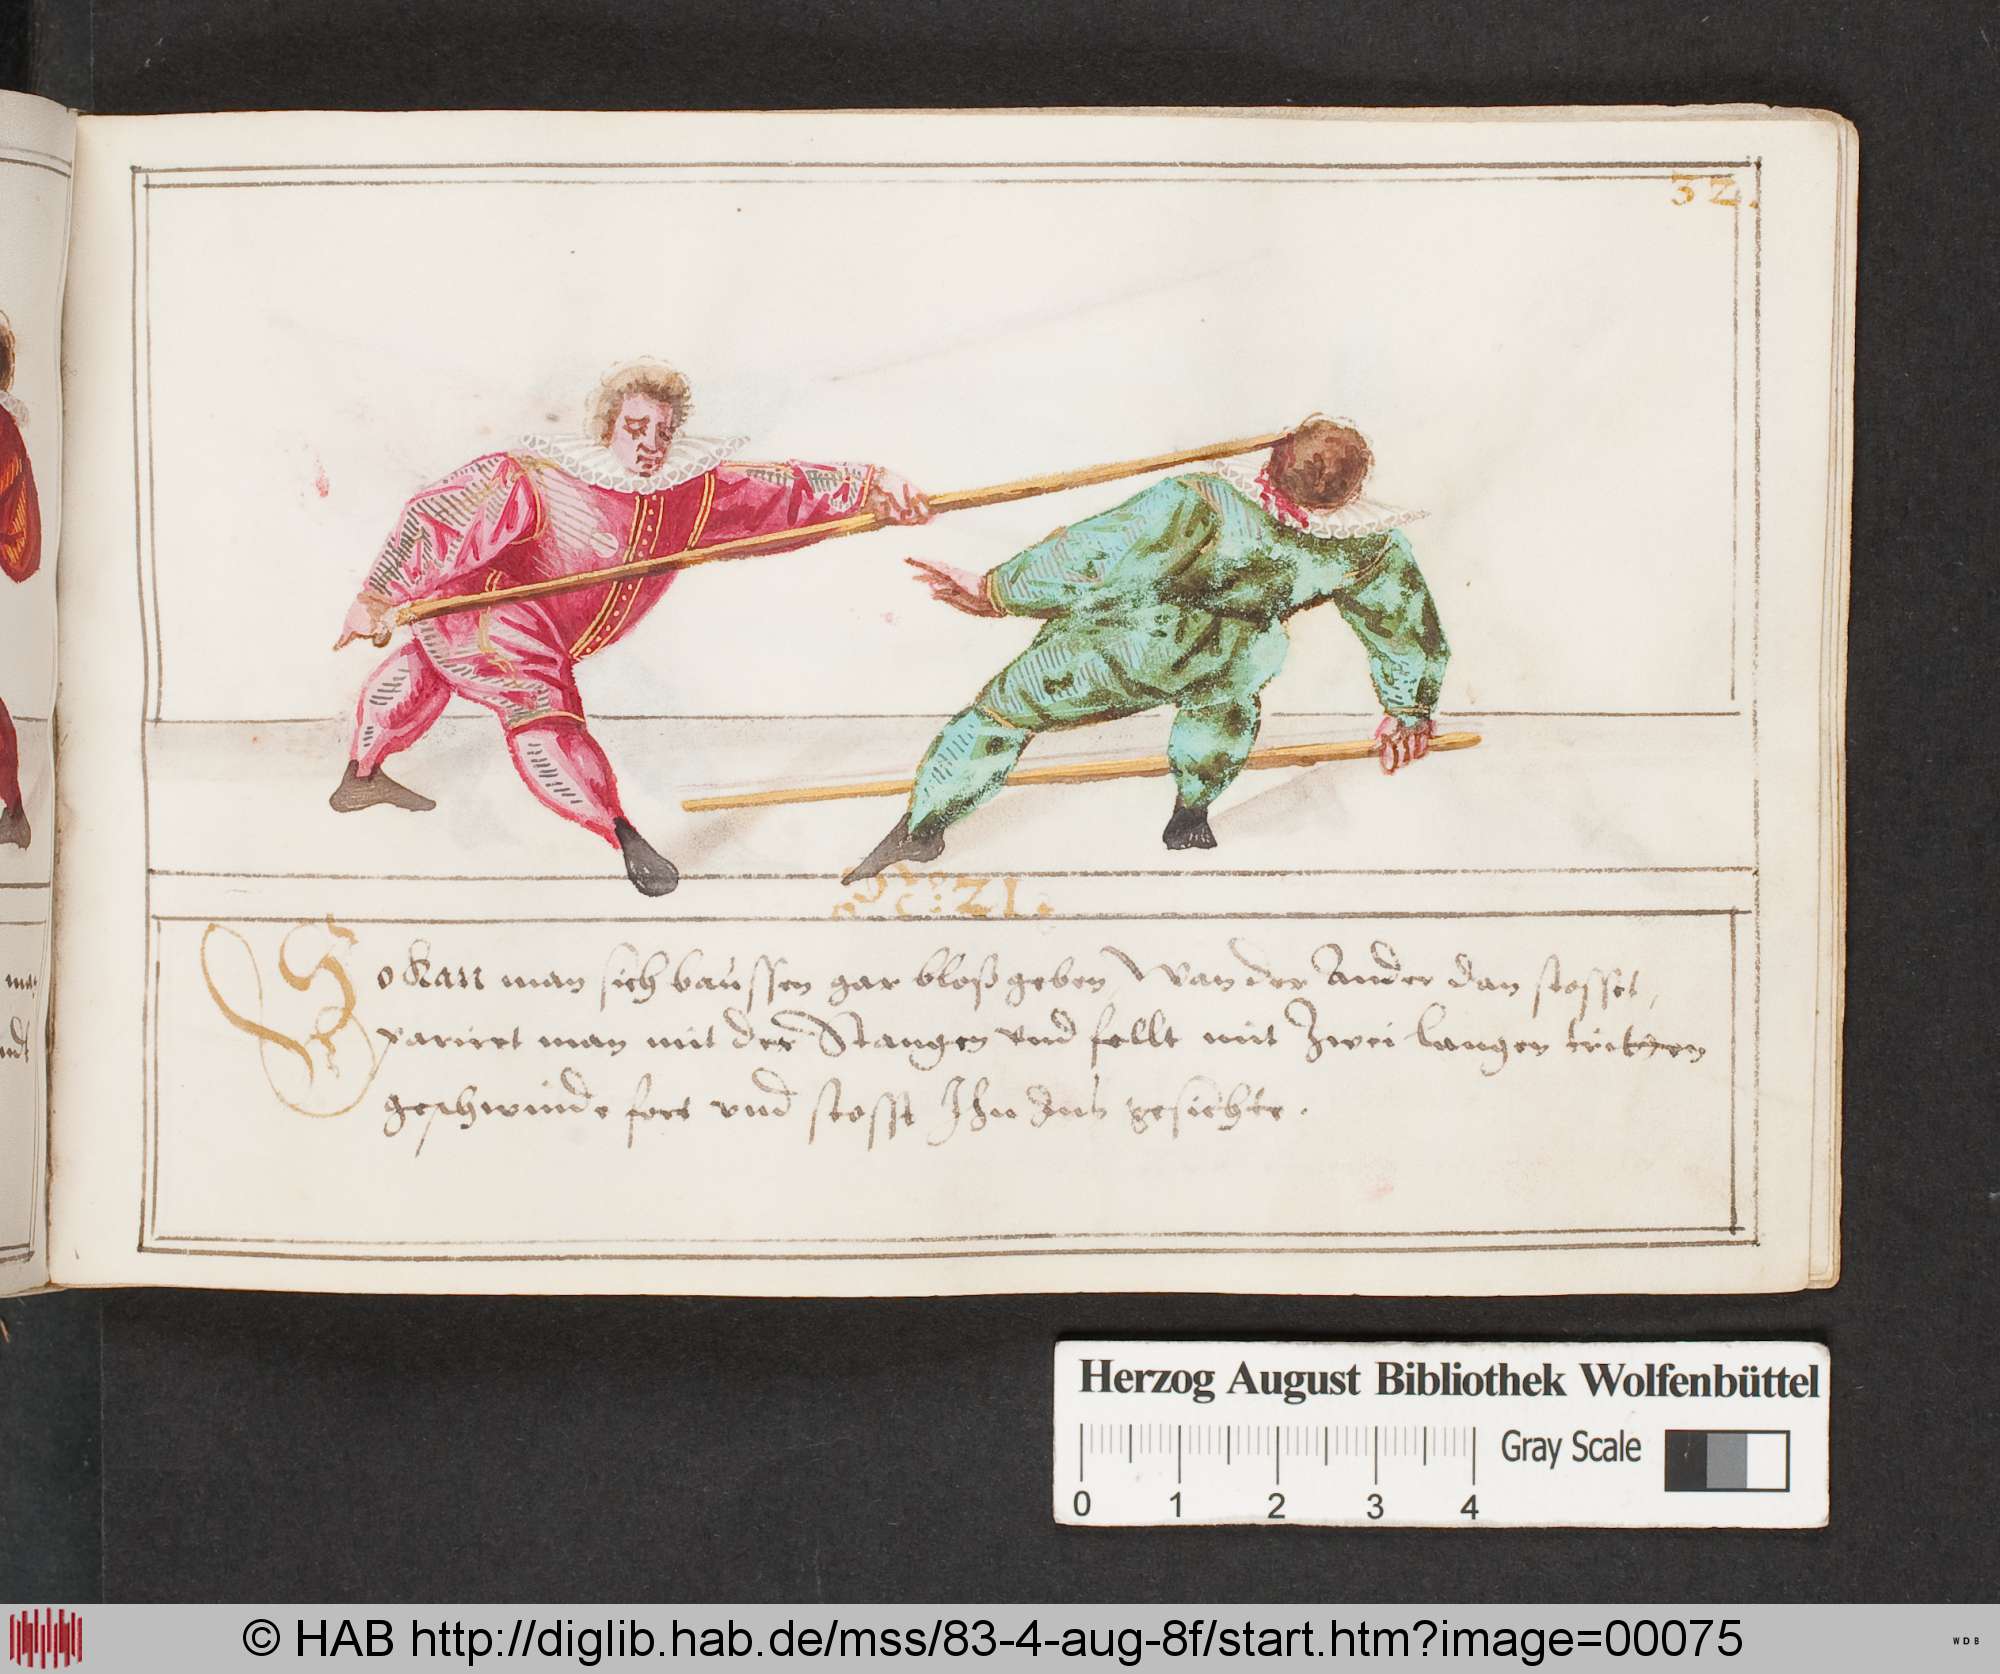 32.
N: 21.
So Kan man sich baussen gar bloß geben, Wan der Ander dan stosset,
pariret man mit der Stangen vnd fellt mit Zwei langen tritten
geschwinde fort vnd stosst Ihn Ins gesichte.
Herzog August Bibliothek Wolfenbüttel
Gray Scale
0 1 2 3 4
© HAB http://diglib.hab.de/mss/83-4-aug-8f/start.htm?image=00075
WDB